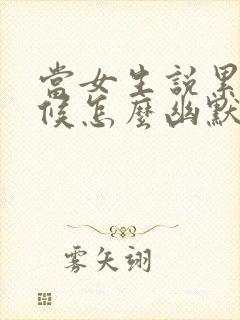 當女生說累
候怎麼幽默
雾矢翊